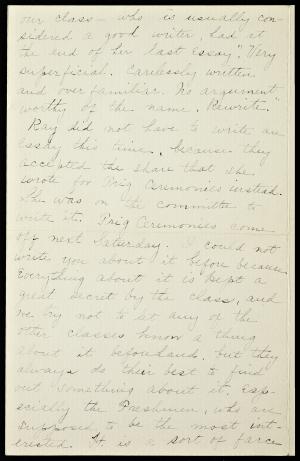 our class - who is usually con-
sidered a good writer, had at
the end of her last essay". Very
superficial. Carelessly written
and over familiar. No argument
worthy of the name. Rewrite."
Ray did not have to write an
essay this time, because they
accepted the share that she
wrote for Trig Ceremonies instead.
She was on the committee to
write it. Trig Ceremonies come
off next Saturday. I could not
write you about it before because
Everything about it is kept a
great secret by the class, and
we try not to let any of the
other classes know a thing
about it beforehand. but they
always do their best to find
out something about it. Esp-
ecially the Freshmen, who are
supposed to be the most int-
erested. It is a sort of farce